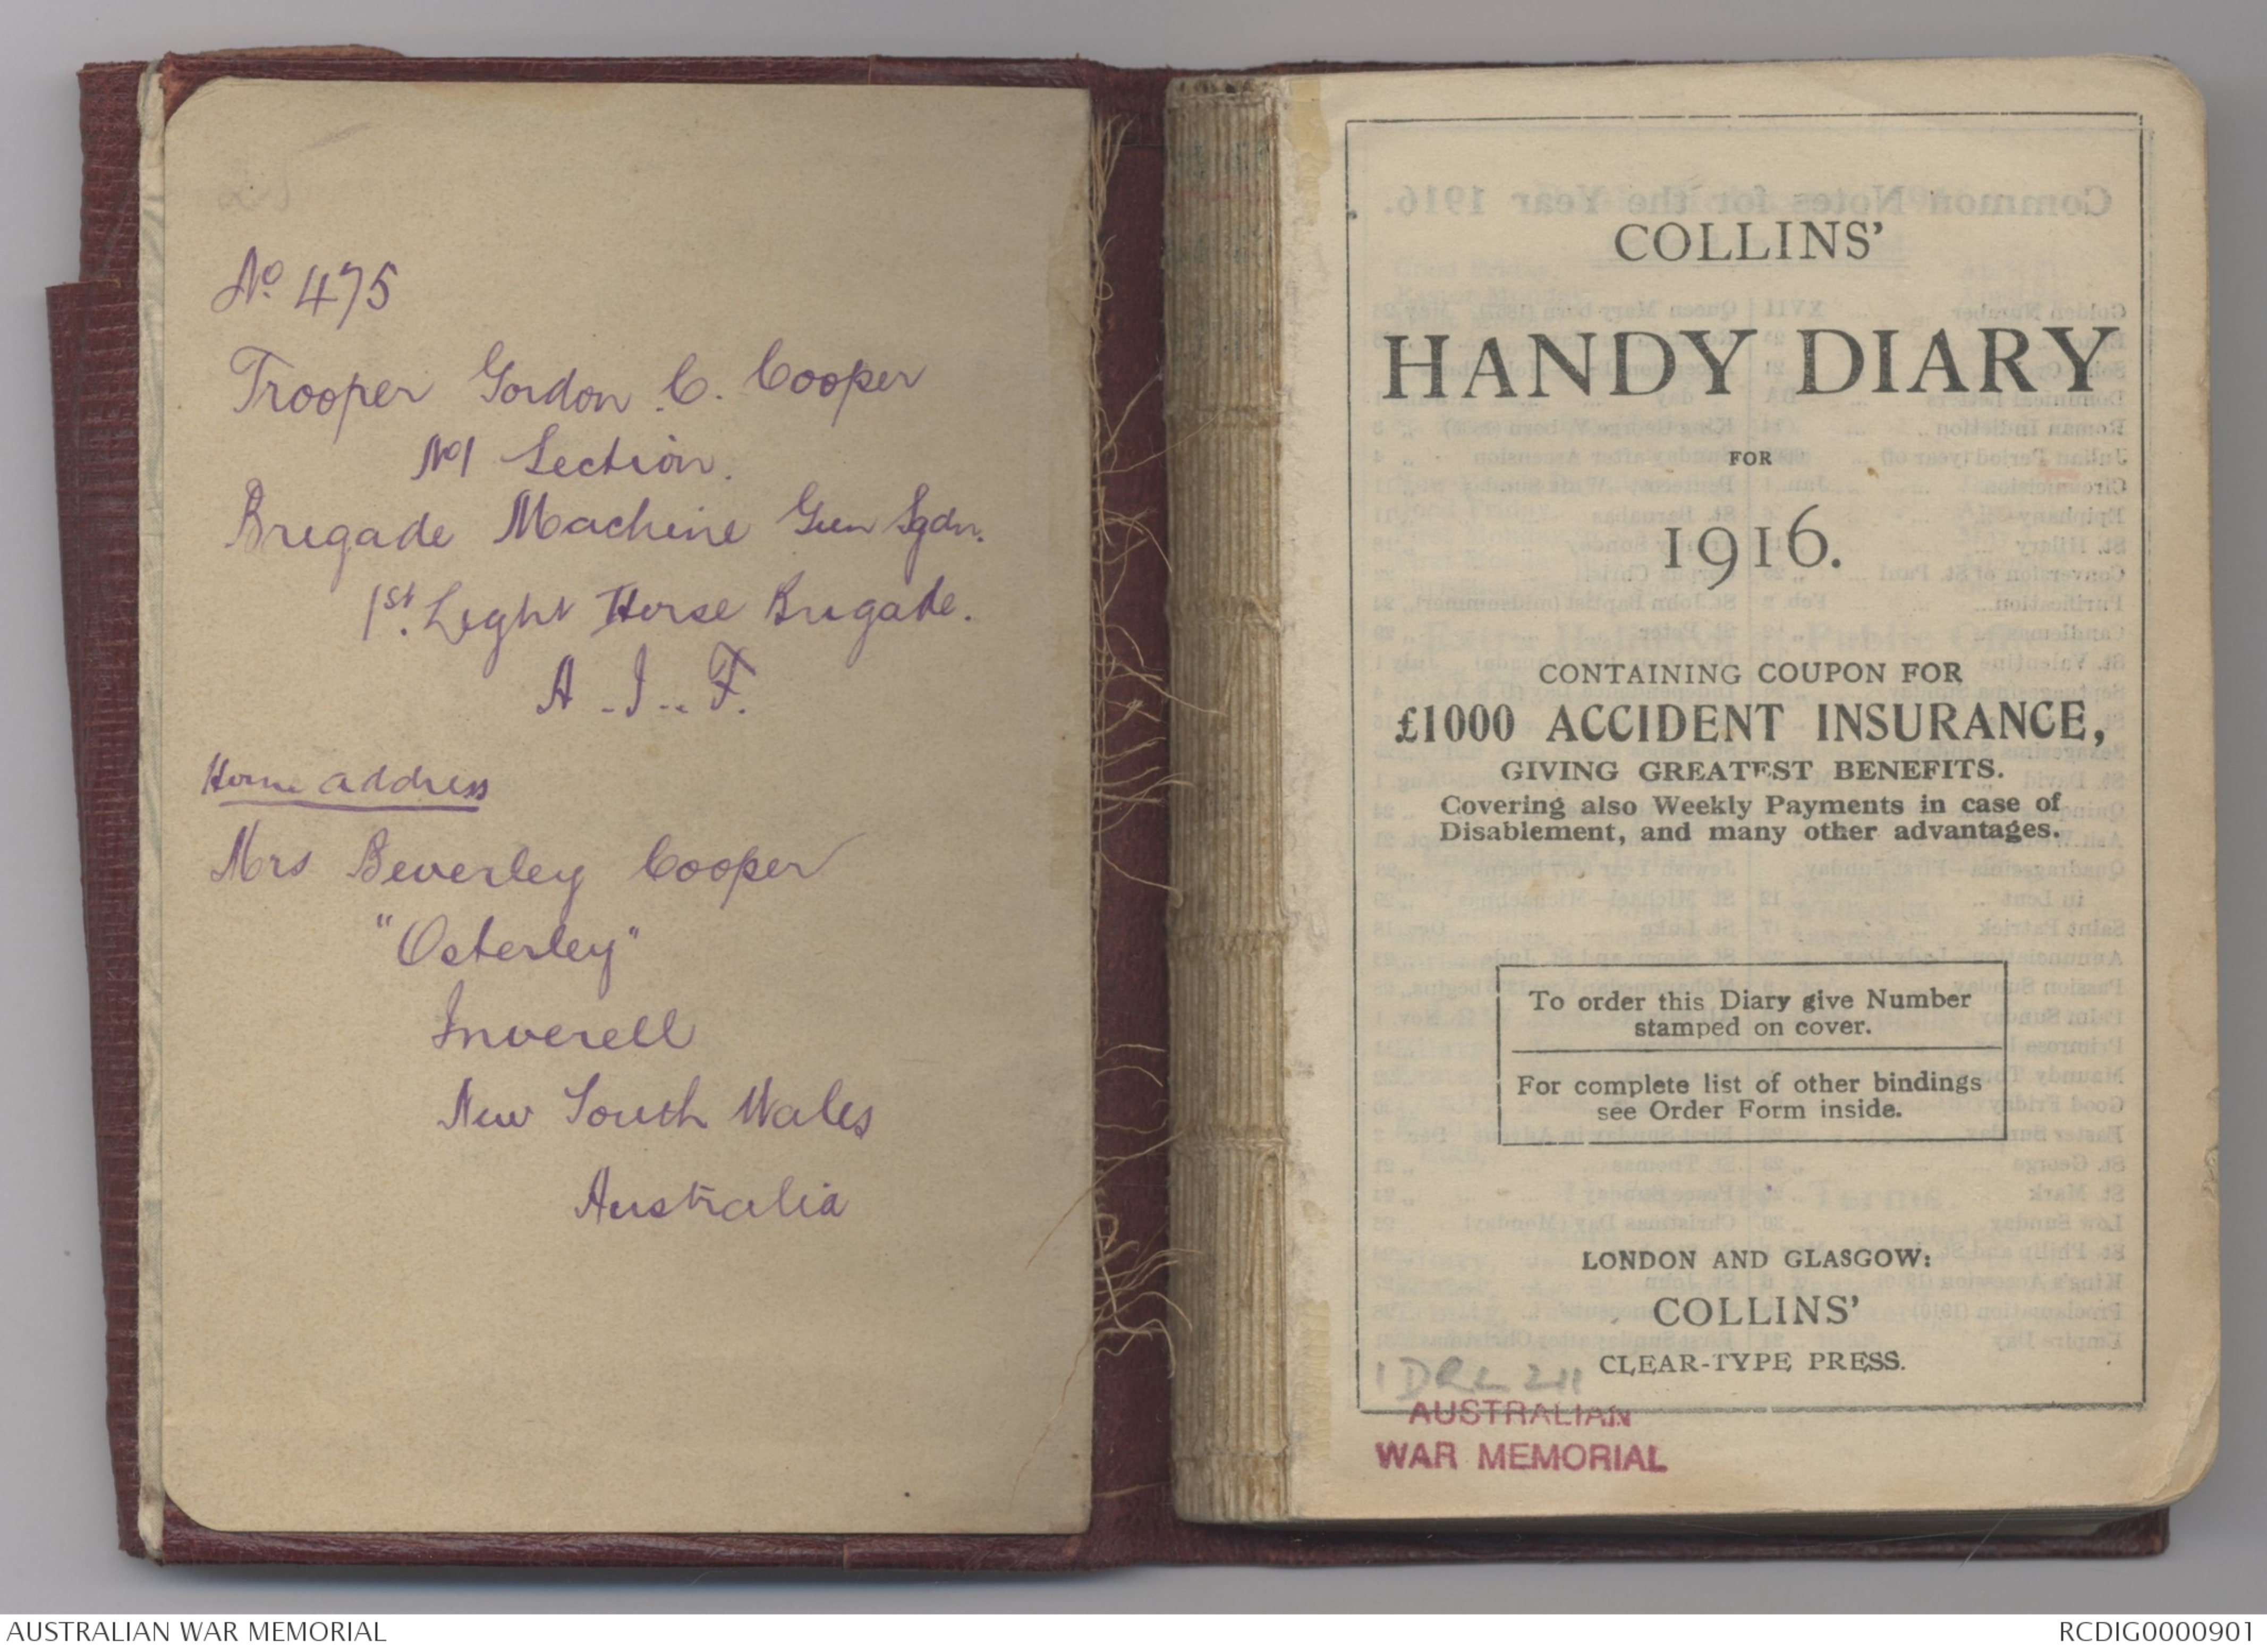 No. 475
Trooper Gordon C. Cooper
No1 Section.
Brigade Machine Gun Sqdn.
1st. Light Horse Brigade.
A.I.F.
Home address
Mrs Beverley Cooper
"Osterley"
Inverell
New South Wales
Australia
COLLINS'
HANDY DIARY
FOR
1916.
CONTAINING COUPON FOR
£1000 ACCIDENT INSURANCE,
GIVING GREATEST BENEFITS.
Covering also Weekly Payments in case of
Disablement, and many other advantages.
To order this Diary give Number
stamped on cover.
For complete list of other bindings
see Order Form inside.
LONDON AND GLASGOW:
COLLINS'
CLEAR-TYPE PRESS.
1 DRL 211
AUSTRALIAN
WAR MEMORIAL
AUSTRALIAN WAR MEMORIAL
RCDIG0000901